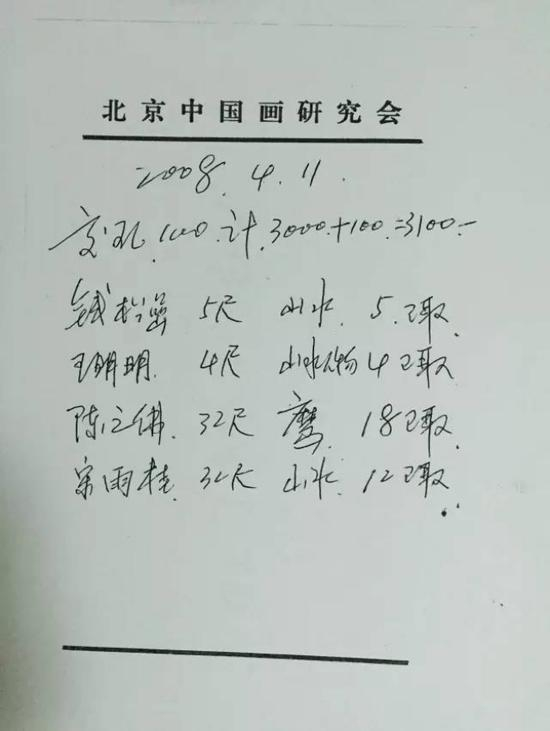 北京中国画研究会
2008.4.11.
交孔.100.计.3000.+100.=3100.-
钱松喦 5尺 山水. 5.已取.
王明明. 4尺 山水人物 4已取
陈之佛. 32尺 鹰. 18已取.
宋雨桂. 32尺 山水. 12已取